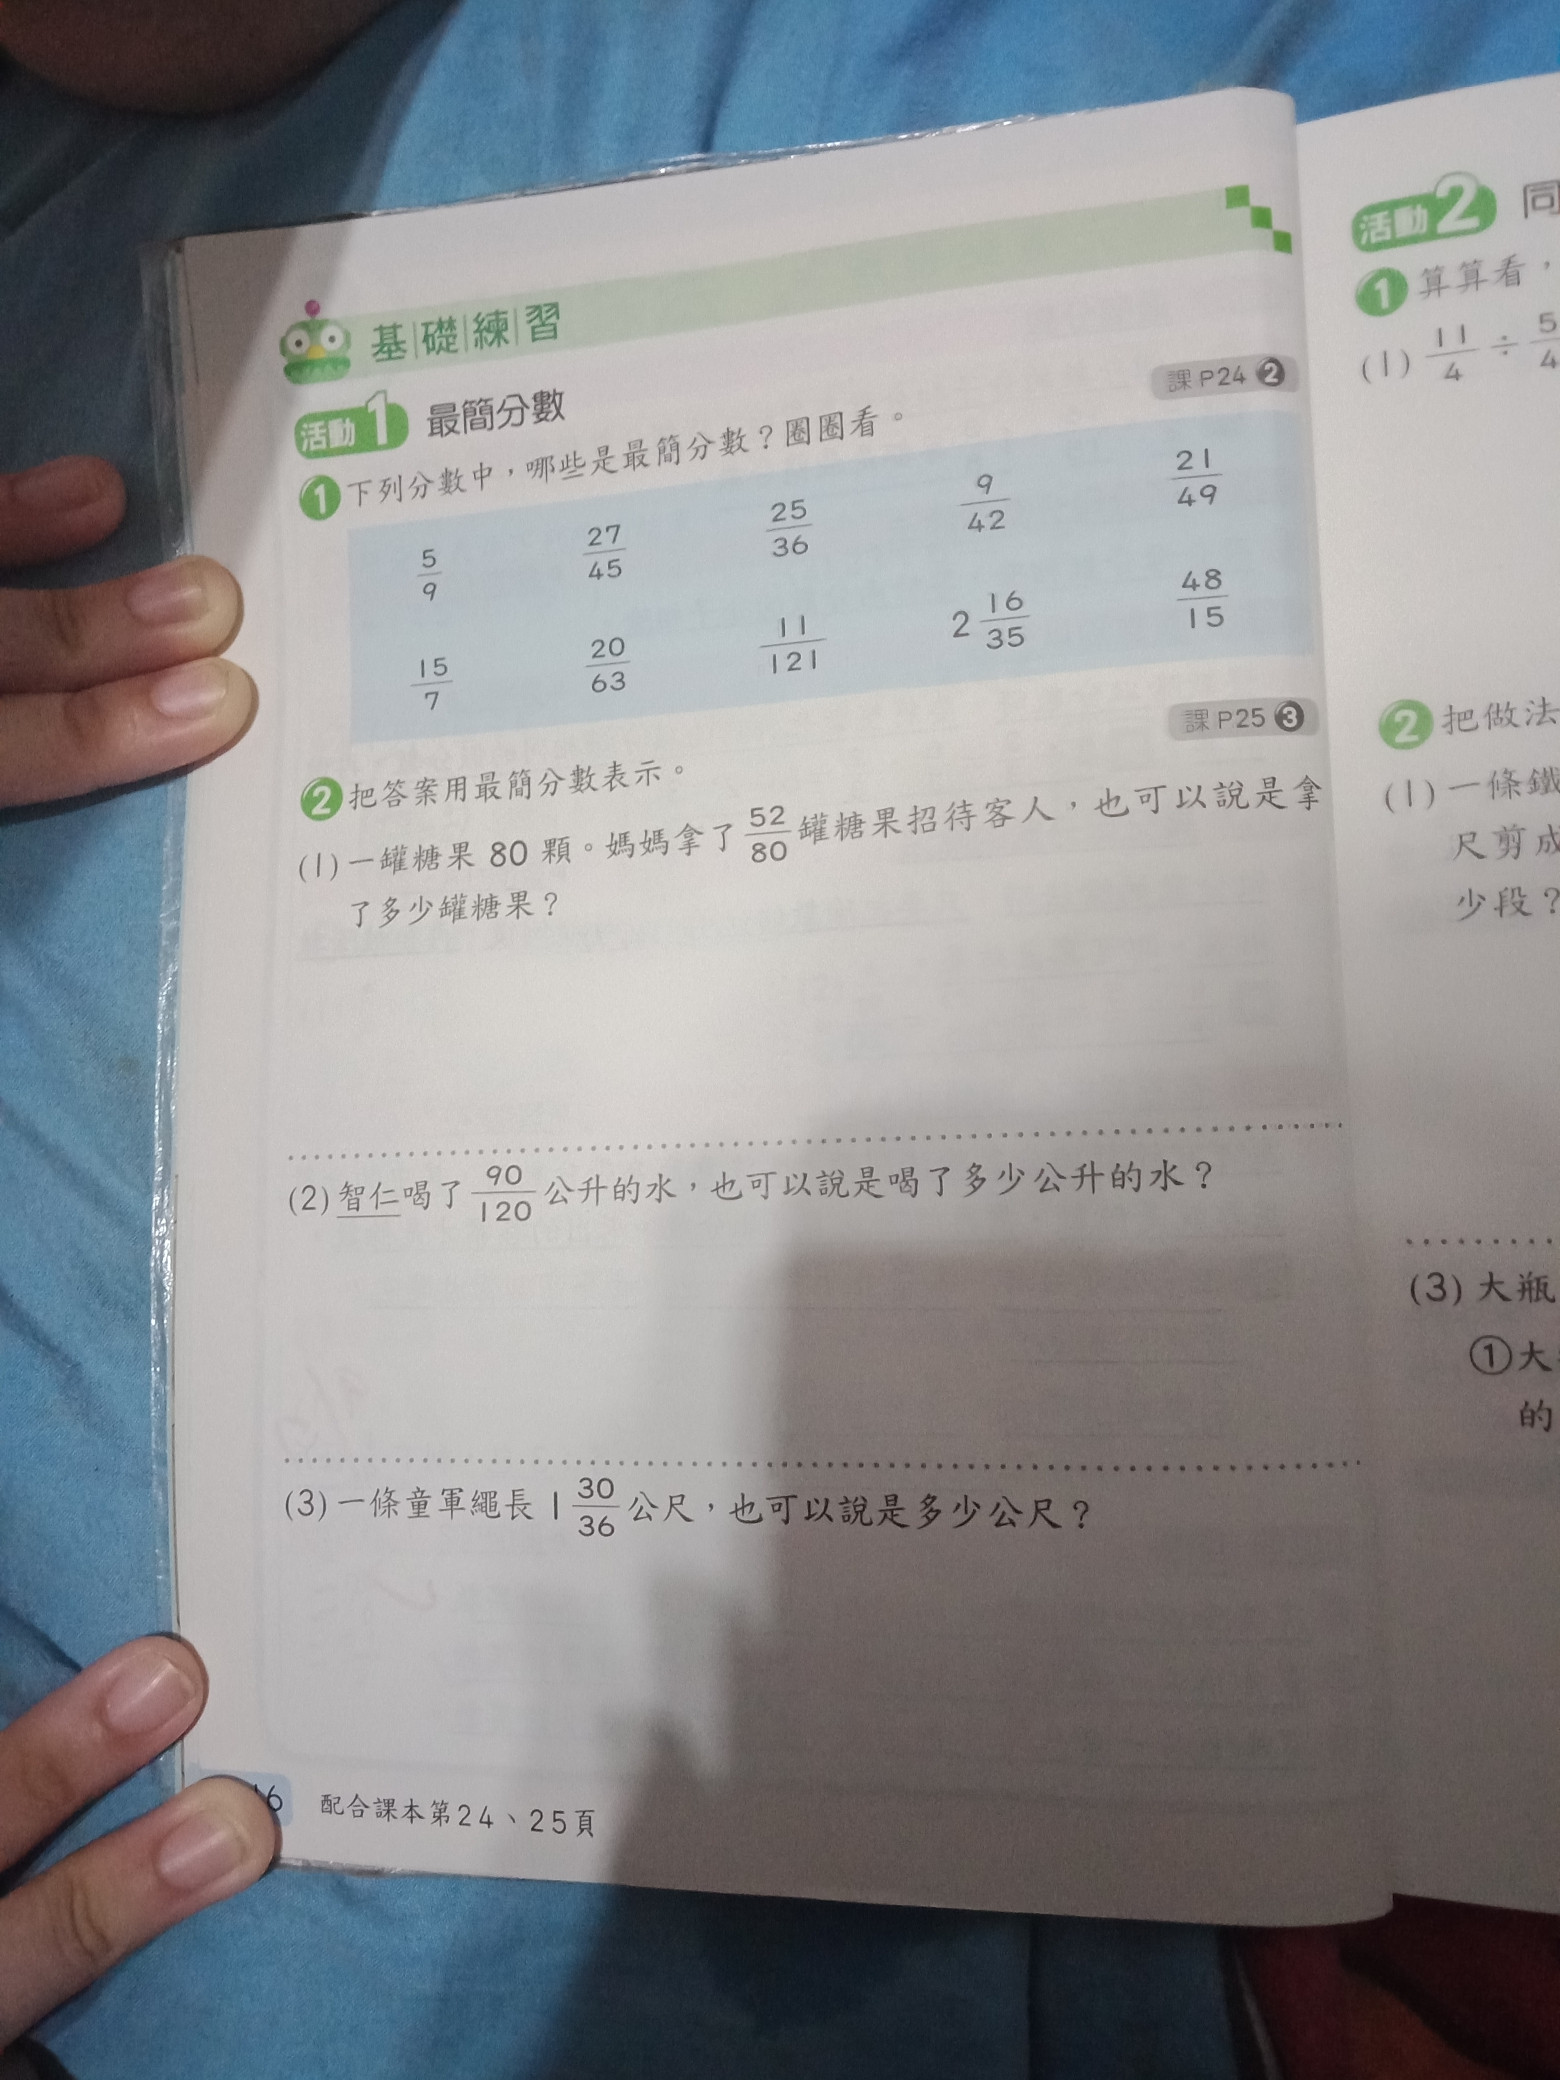 基礎練習
活動1 最簡分數
課P24 ❷
❶ 下列分數中，哪些是最簡分數？圈圈看。
5/9 27/45 25/36 9/42 21/49
15/7 20/63 11/121 2 16/35 48/15
課P25 ❸
❷ 把答案用最簡分數表示。
(1) 一罐糖果 80 顆。媽媽拿了 52/80 罐糖果招待客人，也可以說是拿
了多少罐糖果？
(2) 智仁喝了 90/120 公升的水，也可以說是喝了多少公升的水？
(3) 一條童軍繩長 1 30/36 公尺，也可以說是多少公尺？
16 配合課本第24、25頁
活動2 同
❶ 算算看，
(1) 11/4 ÷ 5/4
❷ 把做法
(1) 一條鐵
尺剪成
少段？
(3) 大瓶
①大
的